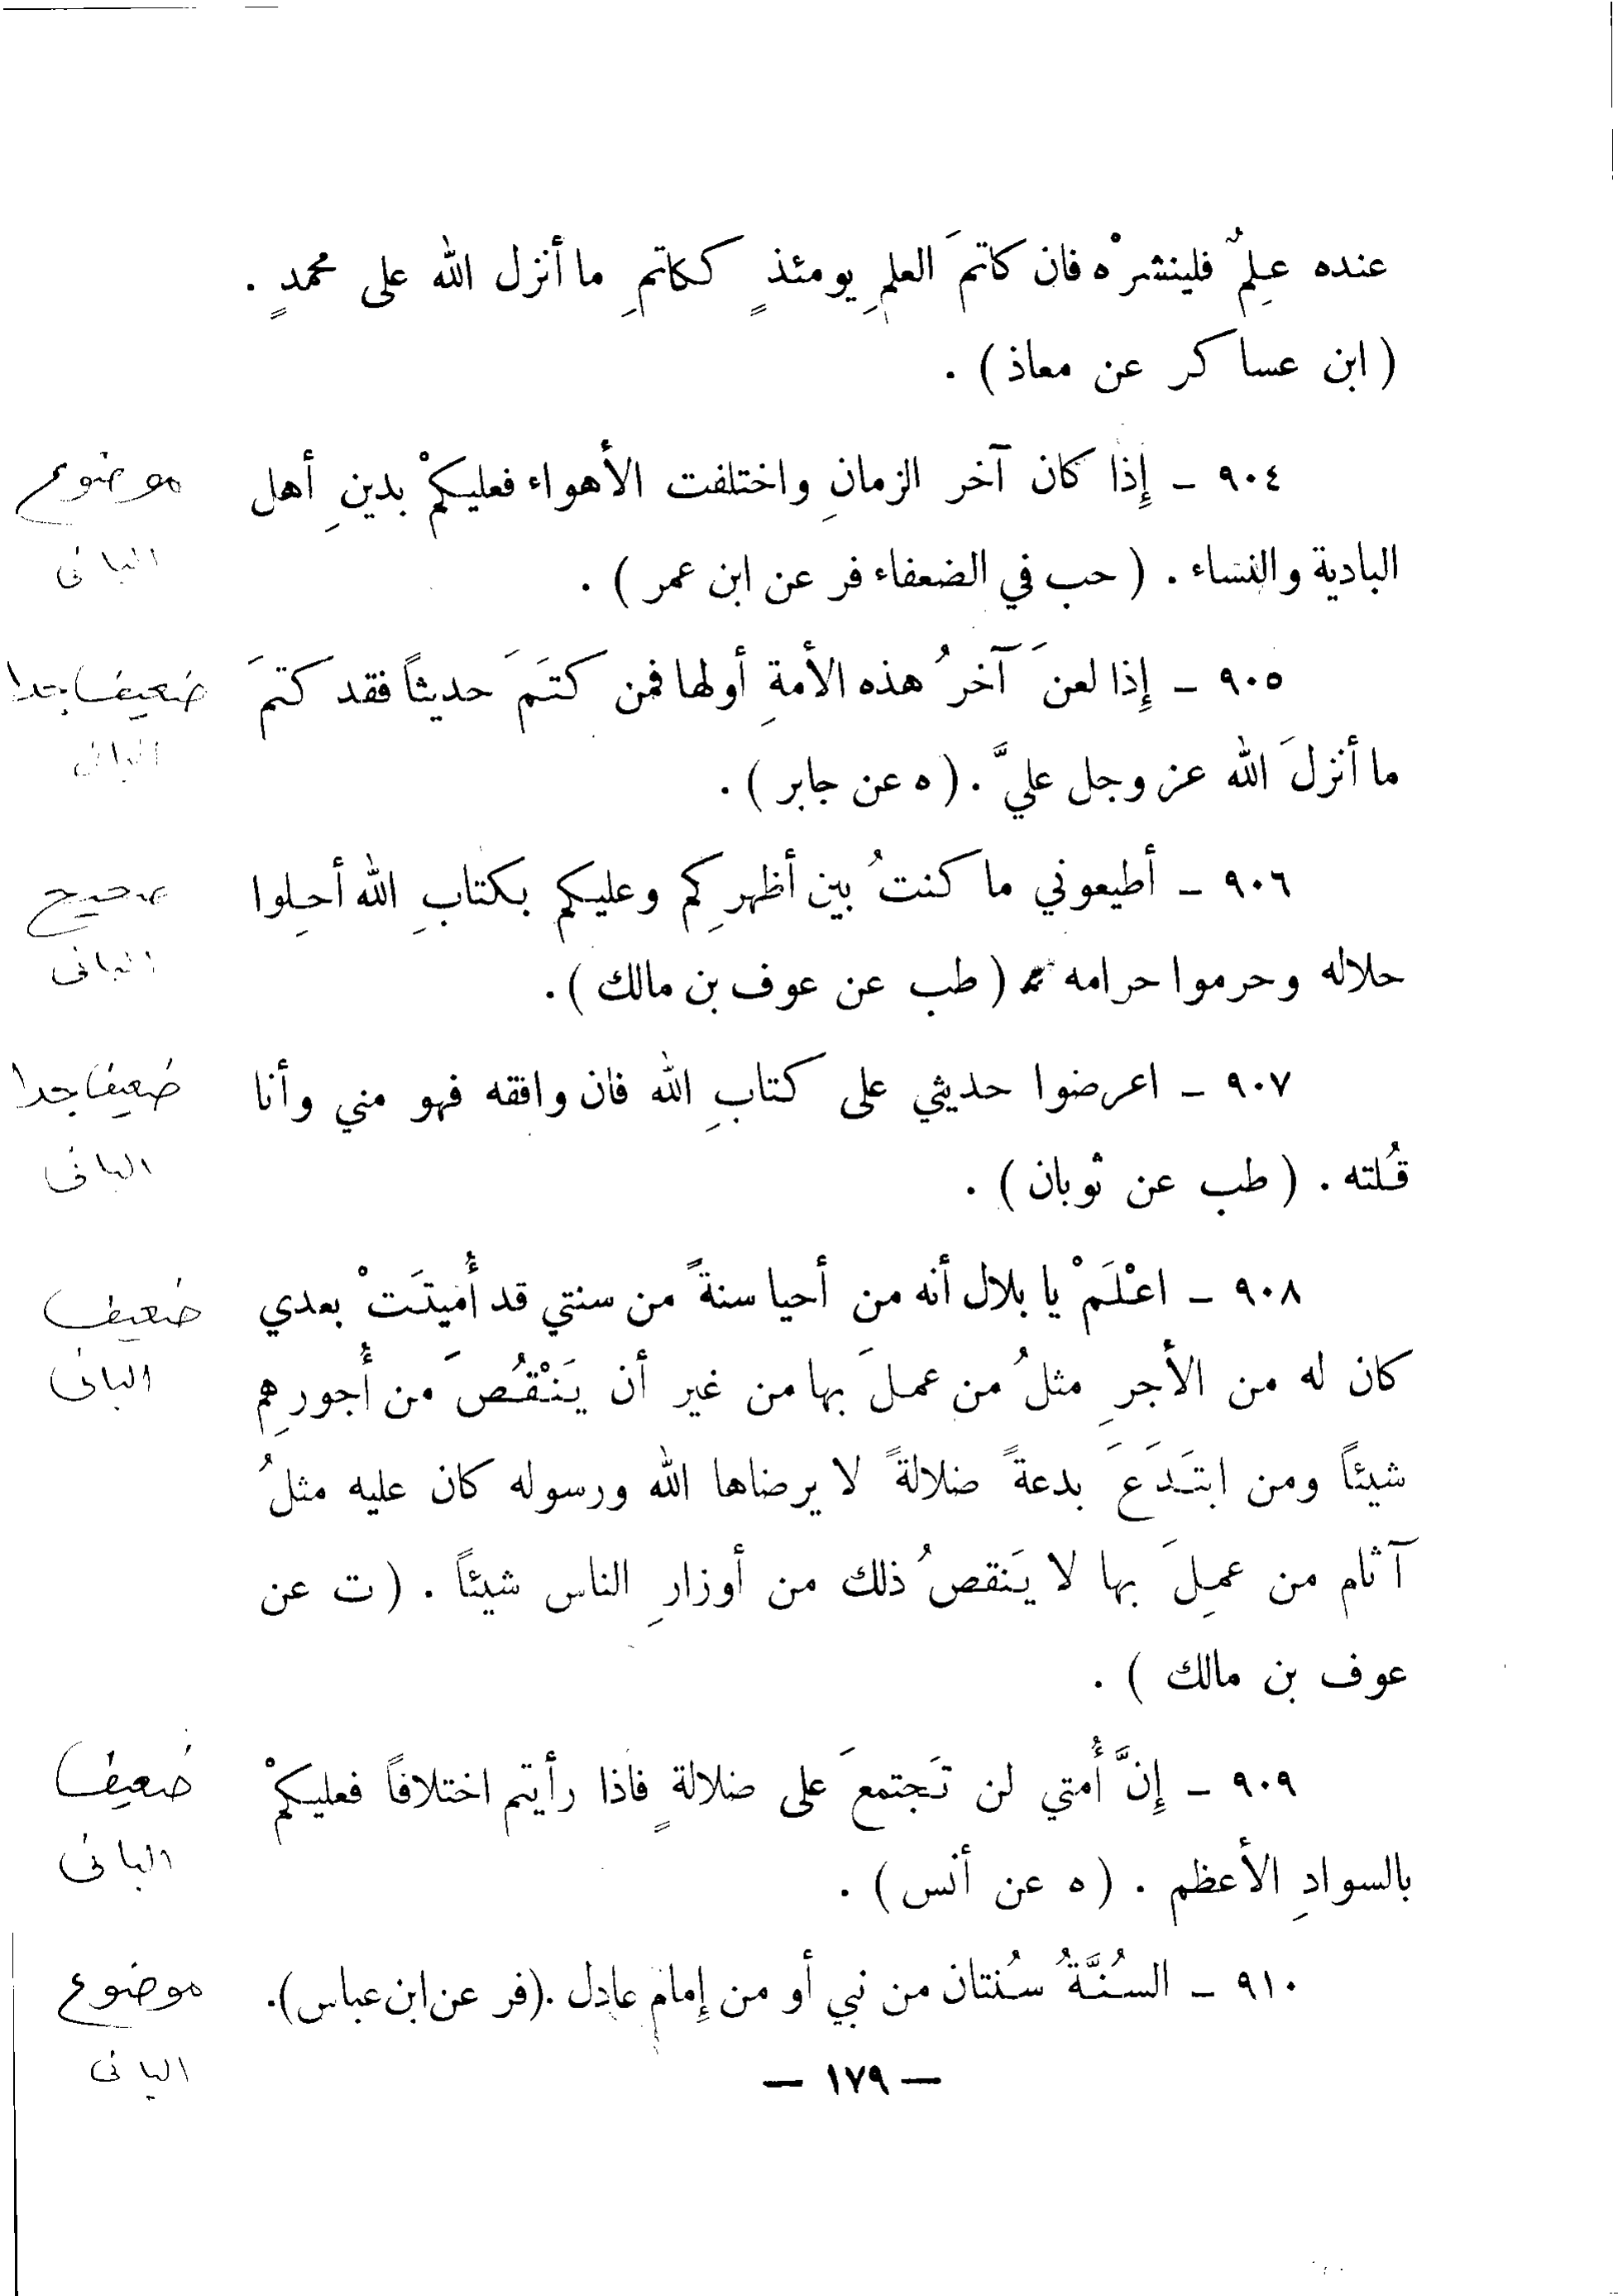 عنده عِلمٌ فلينشرْه فان كاتمَ العلمِ يومئذٍ ككاتمِ ما أنزل الله على محمدٍ .
( ابن عساكر عن معاذ ) .
٩٠٤ - إِذا كان آخر الزمانِ واختلفت الأهواء فعليكمْ بدينِ أهل
موضوع
البادية والنساء . ( حب في الضعفاء فر عن ابن عمر ) .
البانى
٩٠٥ - إِذا لعنَ آخرُ هذه الأمةِ أولها فمن كتَمَ حديثاً فقد كتمَ
ضعيف جدا
ما أنزلَ الله عز وجل عليَّ . ( ه عن جابر ) .
البانى
٩٠٦ - أطيعوني ما كنتُ بين أظهرِكم وعليكم بكتابِ الله أحِلوا
صحيح
حلاله وحرموا حرامه ( طب عن عوف بن مالك ) .
البانى
٩٠٧ - اعرضوا حديثي على كتابِ الله فان وافقه فهو مني وأنا
ضعيف جدا
قُلته . ( طب عن ثوبان ) .
البانى
٩٠٨ - اعْلَمْ يا بلال أنه من أحيا سنةً من سنتي قد أُميتَتْ بعدي
ضعيف
كان له من الأجرِ مثلُ من عملَ بها من غير أن يَنْقُصَ من أُجورِهم
البانى
شيئاً ومن ابتَدَعَ بدعةً ضلالةً لا يرضاها الله ورسوله كان عليه مثلُ
آثام من عمِلَ بها لا يَنقصُ ذلك من أوزارِ الناس شيئاً . ( ت عن
عوف بن مالك ) .
٩٠٩ - إِنَّ أُمتي لن تَجتمعَ على ضلالةٍ فاذا رأيتم اختلافاً فعليكمْ
ضعيف
بالسوادِ الأعظم . ( ه عن أنس ) .
البانى
٩١٠ - السُنَّةُ سُنتان من نبي أو من إِمام عادل .(فر عن ابن عباس).
موضوع
البانى
— ١٧٩ —